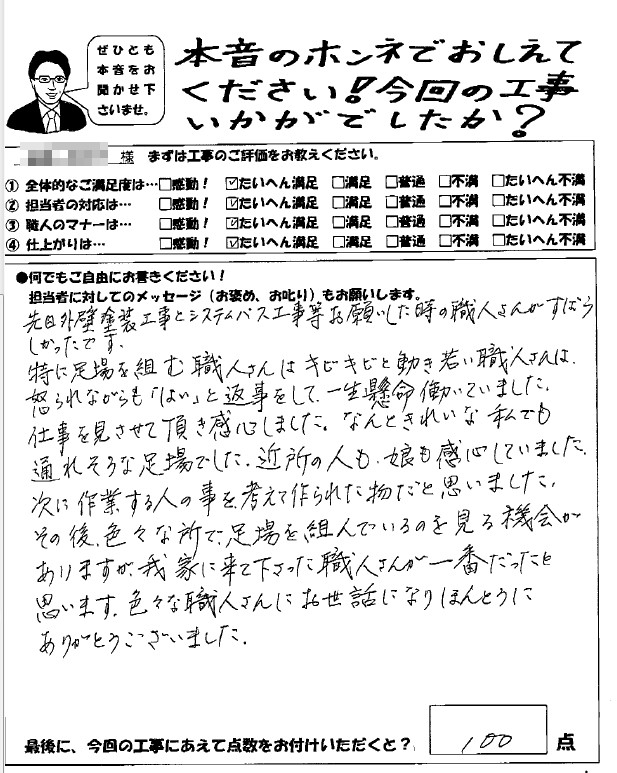 ぜひとも
本音をお
聞かせ下
さいませ。
本音のホンネでおしえて
ください!今回の工事
いかがでしたか?
様 まずは工事のご評価をお教えください。
① 全体的なご満足度は…□感動! ☑たいへん満足 □満足 □普通 □不満 □たいへん不満
② 担当者の対応は… □感動! ☑たいへん満足 □満足 □普通 □不満 □たいへん不満
③ 職人のマナーは… □感動! ☑たいへん満足 □満足 □普通 □不満 □たいへん不満
④ 仕上がりは… □感動! ☑たいへん満足 □満足 □普通 □不満 □たいへん不満
●何でもご自由にお書きください!
担当者に対してのメッセージ(お褒め、お叱り)もお願いします。
先日外壁塗装工事とシステムバス工事等お願いした時の職人さんがすばら
しかったです。
特に足場を組む職人さんはキビキビと動き若い職人さんは、
怒られながらも「はい」と返事をして、一生懸命働いていました。
仕事を見させて頂き感心しました。なんときれいな私でも
通れそうな足場でした。近所の人も、娘も感心していました。
次に作業する人の事を考えて作られた物だと思いました。
その後、色々な所で、足場を組んでいるのを見る機会が
ありますが、我家に来て下さった職人さんが一番だったと
思います。色々な職人さんにお世話になりほんとうに
ありがとうございました。
最後に、今回の工事にあえて点数をお付けいただくと? 100 点